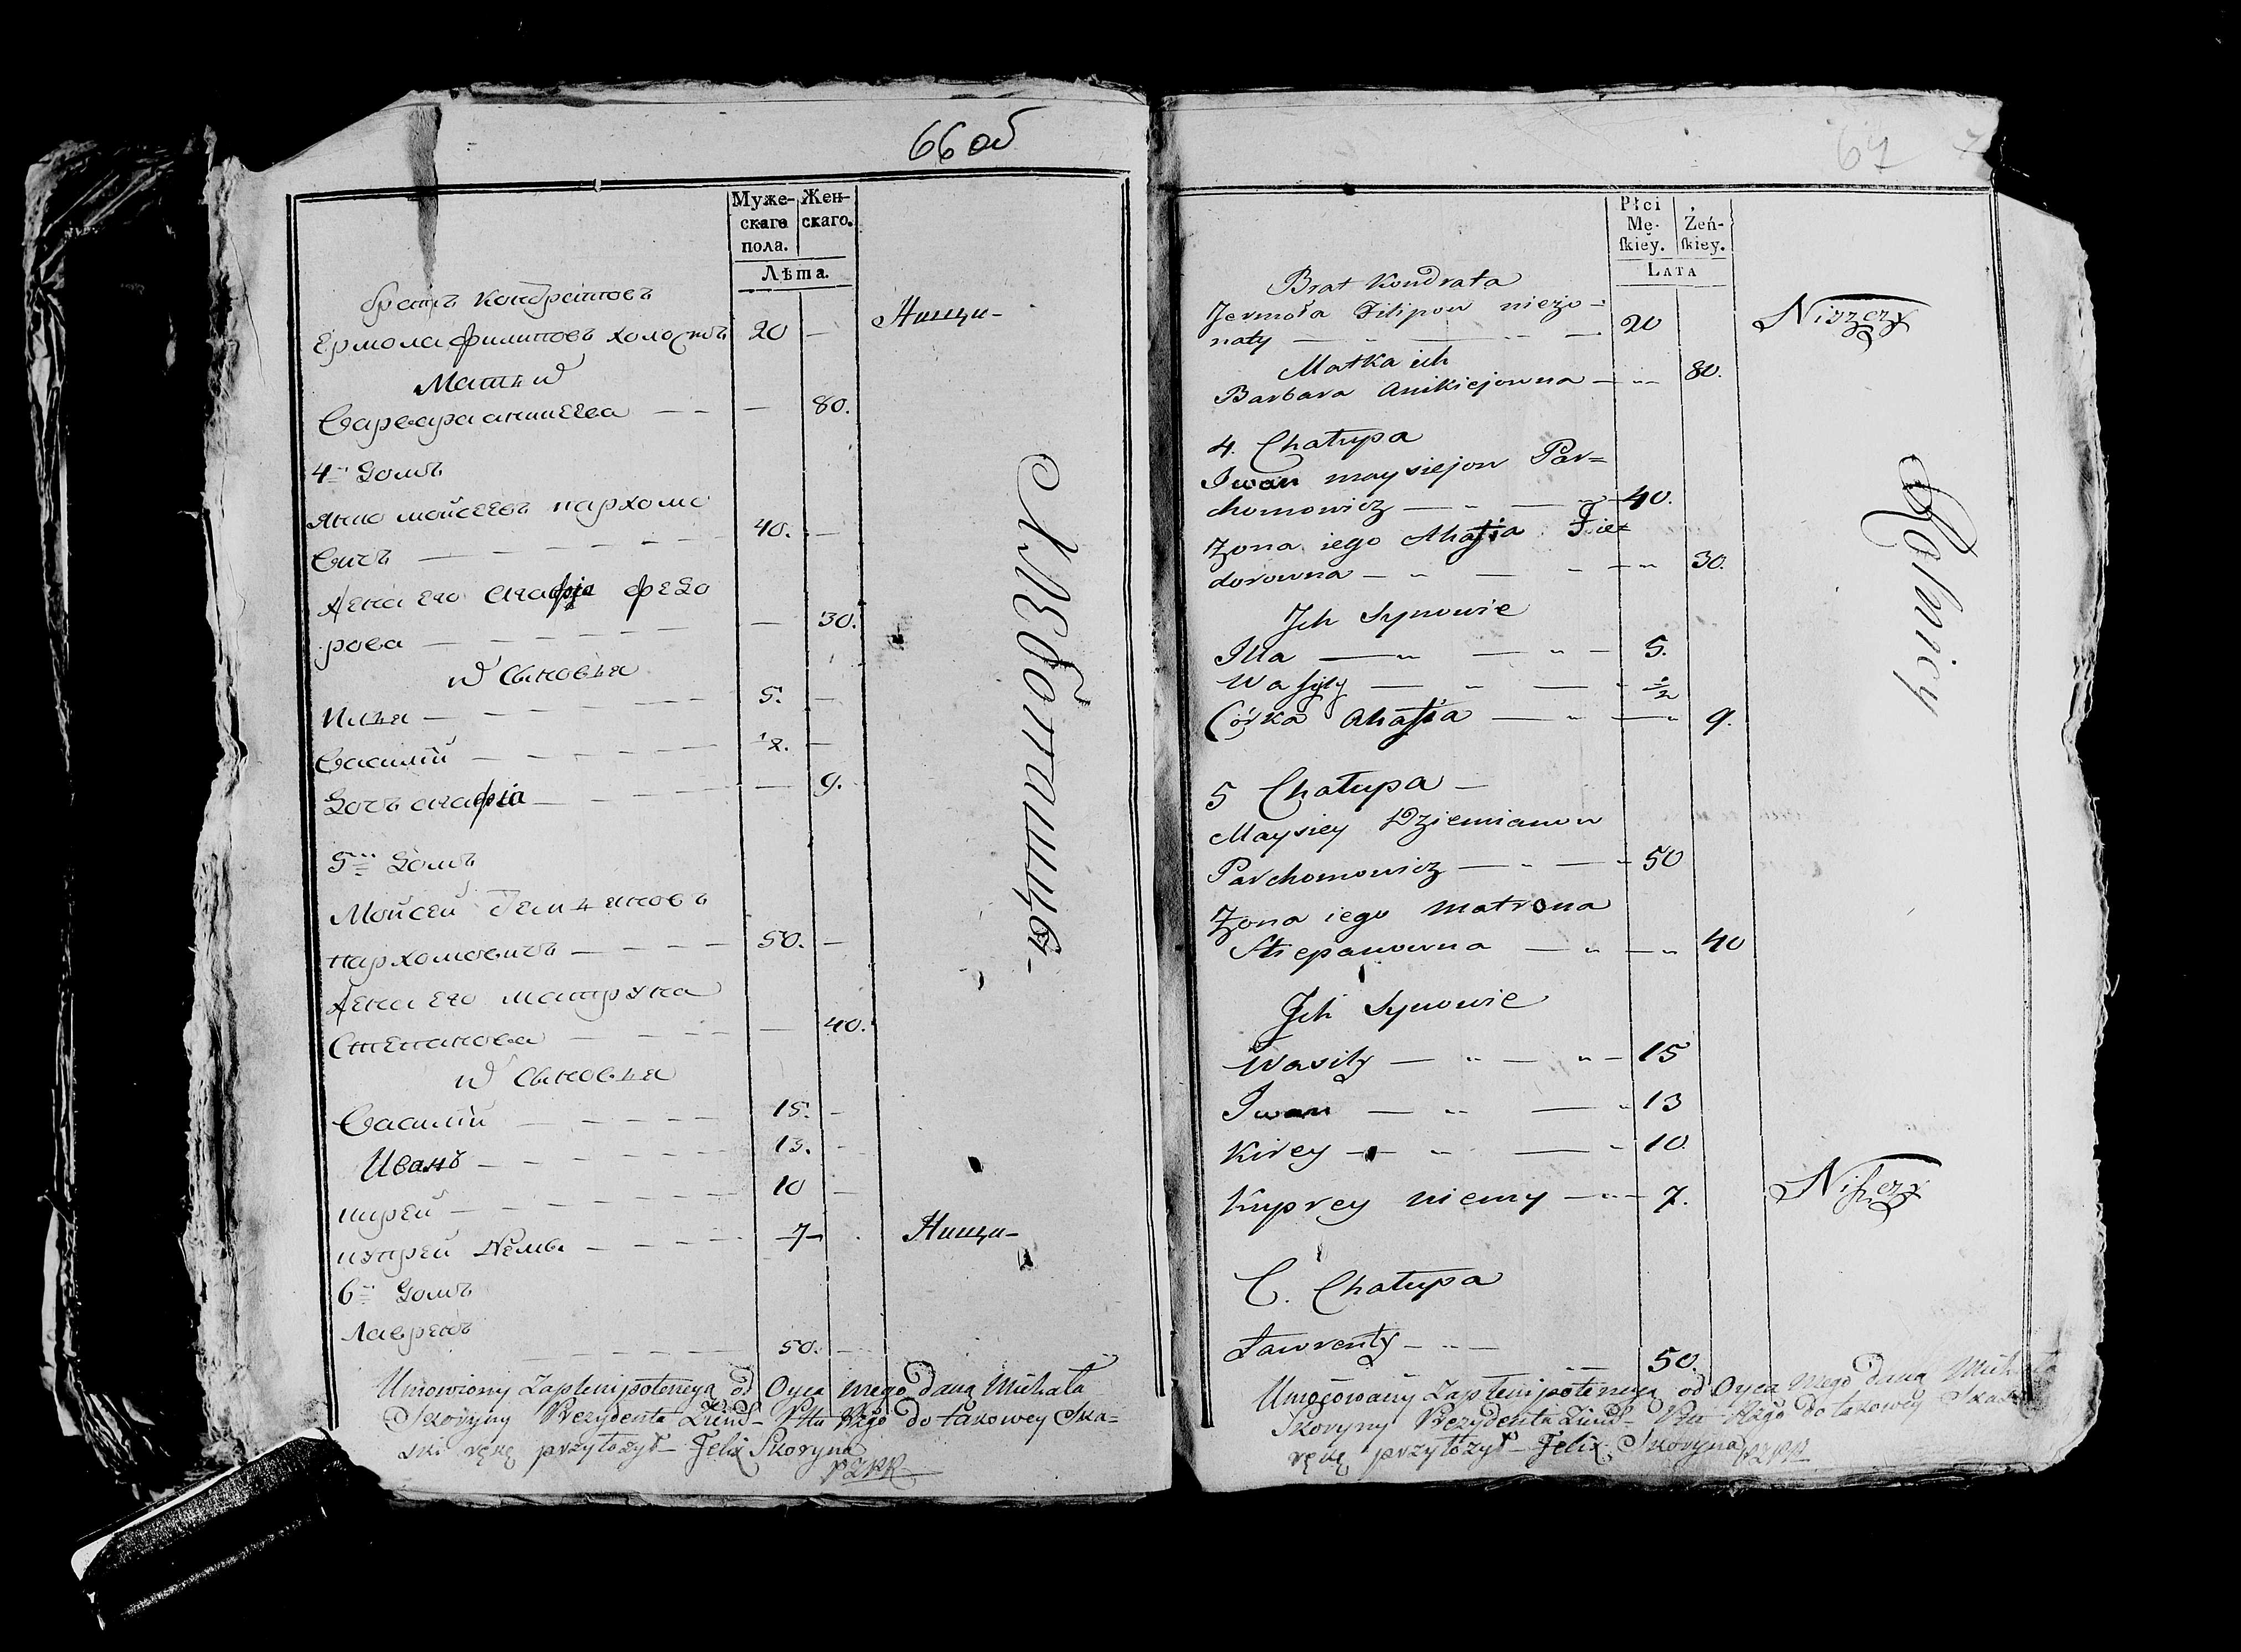 66 об
Муже-
скаго
пола.
Жен-
скаго.
Лѣта.
братъ кондратовъ
Ермола филиповъ холостъ 20 —
Нищи-
Мать ихъ
Варвара аникеева — — — 80.
4й домъ
моисеевъ пархомо
вичъ — — — — — — 40. —
Жена его агафія федо
рова — — — — — — — 30.
ихъ сыновья
Илья — — — — — — 5. —
Василій — — — — — ½. —
Дочъ агафія — — — — — 9.
5й домъ
Моисей демьяновъ
пархомовичъ — — — — 50. —
Жена его матруна
Степанова — — — — 40.
ихъ сыновья
Василій — — — — — 15. —
Иванъ — — — — — 13. —
кирей — — — — — — 10 —
купрей немы — — — — 7-
Нищи-
6й домъ
лавренъ
— — — — — 50. —
Umowiony Zaplenipotencyą od Oyca mego daną Michała
Skoryny Prezydenta Ziem- Pttu Rzgo do takowey Ska=
ski rękę przyłożył- Felix Skoryna
PZPR
67
Płci
Mę-
ſkiey.
Żeń-
ſkiey.
LATA
Brat Kondrata
Jermoła Filipow nieżo-
naty — " — " — 20
Niszczy
Matka ich
Barbara Anikiejowna — " — 80.
4. Chałupa
Iwan maysiejow Par=
chomowicz — " — " — 40.
Żona iego Ahafia Fie=
dorowna — " — - — " 30.
Ich Synowie
Illa — " — " — 5.
Waſyly — " — - ½
Córka Ahafia — " — " 9.
Rolnicy
5 Chałupa —
Maysiey Dziemianow
Parchomowicz — " — - 50
Żona iego Matrona
Stiepanowna — " — " 40
Ich Synowie
Wasily — " — " — 15
Iwan — " — " 13
Kirey — " — - 10.
Kuprey niemy — " — 7.
Niſzczy
6. Chałupa
Ławrenty — " —
" — 50.
Umocowany Zaplenipotencyą od Oyca mego daną Michała
Skoryny Prezydenta Ziem- Pttu Rzgo do takowey Skaski
rękę przyłożył- Felix Skoryna PZPR